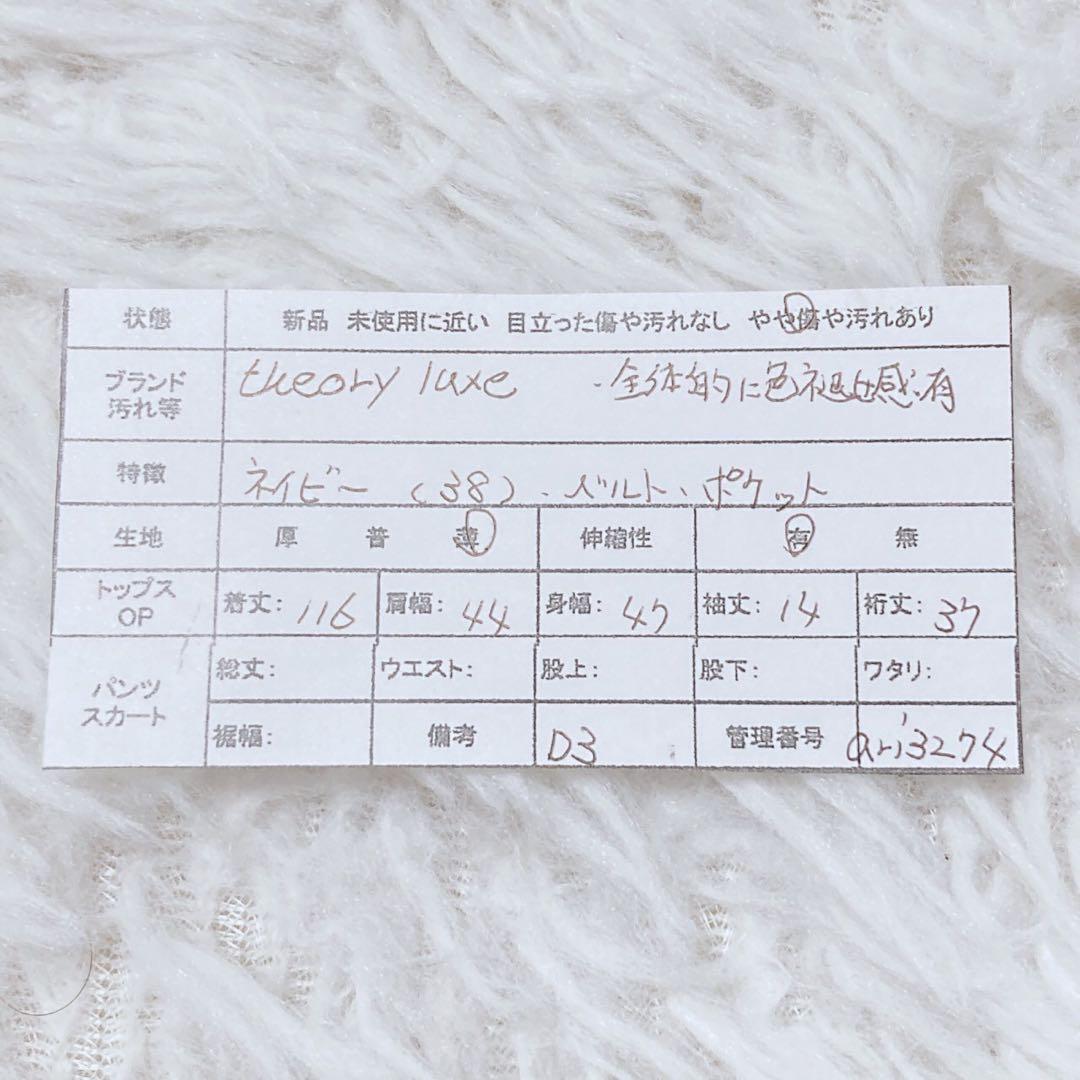 状態 新品 未使用に近い 目立った傷や汚れなし やや傷や汚れあり
ブランド 汚れ等 theory luxe ・全体的に色褪せ感有
特徴 ネイビー (38)、ベルト、ポケット
生地 厚 普 薄 伸縮性 有 無
トップス OP 着丈: 116 肩幅: 44 身幅: 47 袖丈: 14 裄丈: 37
パンツ スカート 総丈: ウエスト: 股上: 股下: ワタリ:
裾幅: 備考 D3 管理番号 ari3274